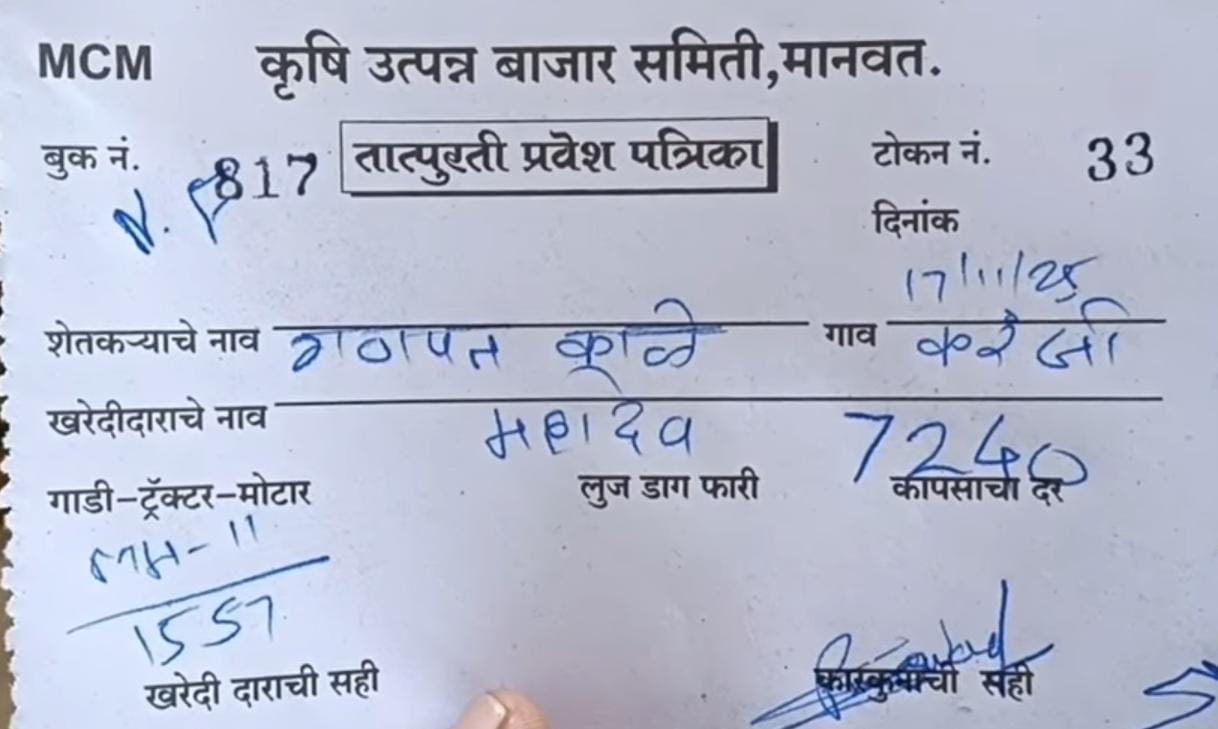 MCM कृषि उत्पन्न बाजार समिती,मानवत.
बुक नं. 817 तात्पुरती प्रवेश पत्रिका टोकन नं. 33
N. P
दिनांक
17/11/25
शेतकऱ्याचे नाव गणपत काळे गाव
खरेदीदाराचे नाव महादेव 7240
गाडी-ट्रॅक्टर-मोटार लुज डाग फारी कापसाचा दर
1557
खरेदी दाराची सही कारकुनाची सही